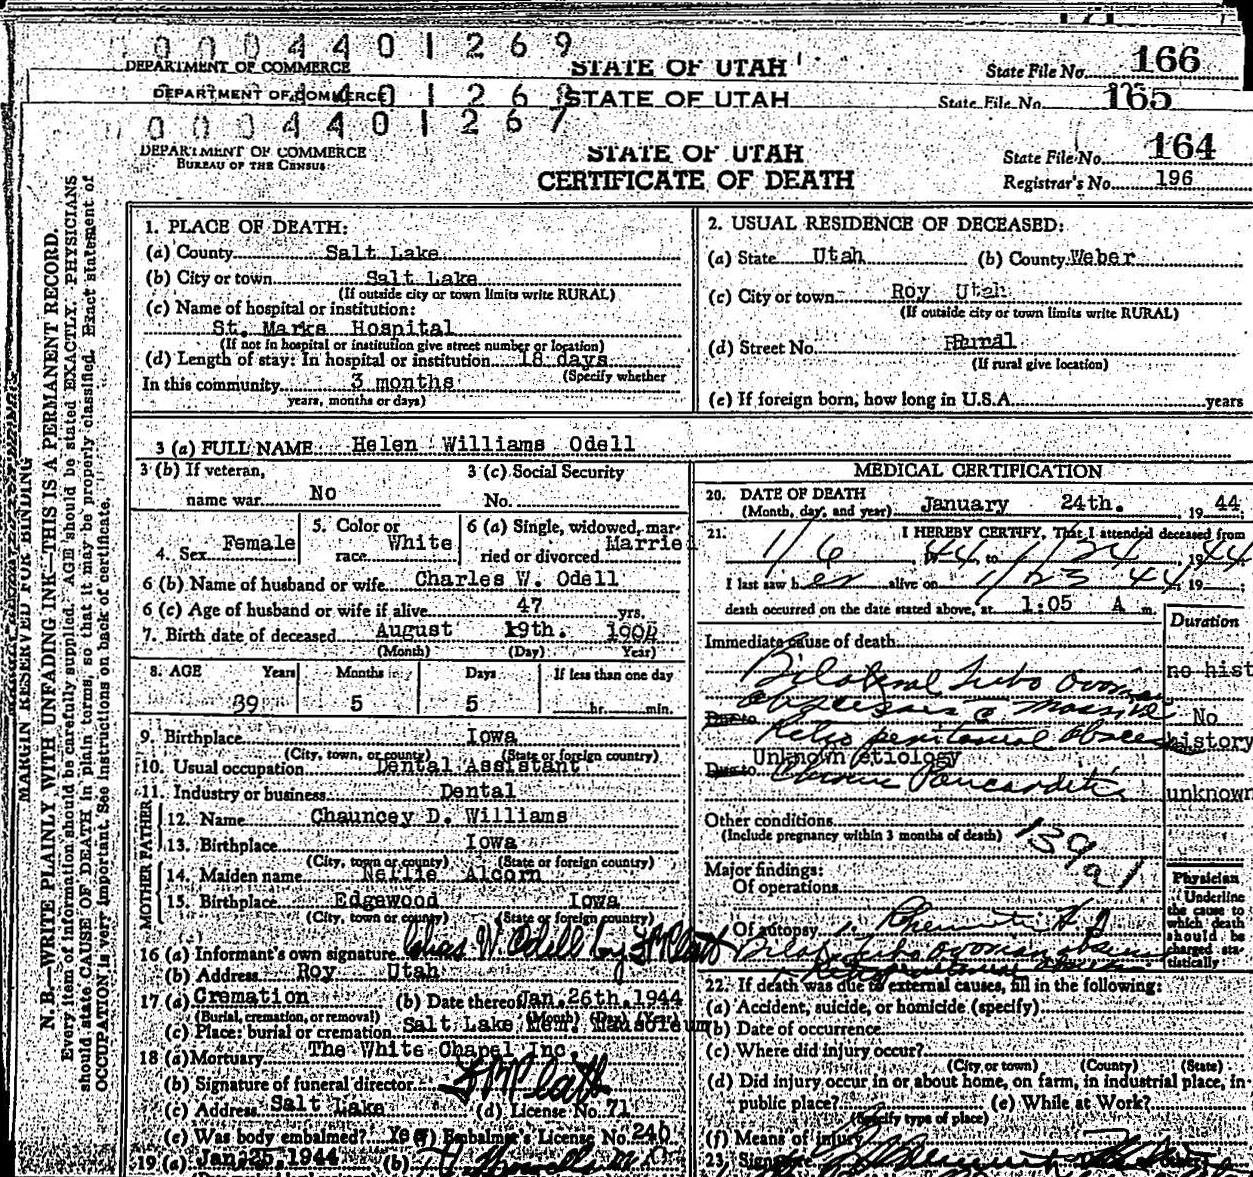 0004401269
DEPARTMENT OF COMMERCE STATE OF UTAH State File No. 166
DEPARTMENT OF COMMERCE STATE OF UTAH State File No. 165
0004401267
DEPARTMENT OF COMMERCE STATE OF UTAH State File No. 164
BUREAU OF THE CENSUS CERTIFICATE OF DEATH Registrar's No. 196
MARGIN RESERVED FOR BINDING
N. B.—WRITE PLAINLY WITH UNFADING INK—THIS IS A PERMANENT RECORD.
Every item of information should be carefully supplied. AGE should be stated EXACTLY. PHYSICIANS
should state CAUSE OF DEATH in plain terms, so that it may be properly classified. Exact statement of
OCCUPATION is very important. See instructions on back of certificate.
1. PLACE OF DEATH:
(a) County Salt Lake
(b) City or town Salt Lake
(If outside city or town limits write RURAL)
(c) Name of hospital or institution:
St. Marks Hospital
(If not in hospital or institution give street number or location)
(d) Length of stay: In hospital or institution 18 days
(Specify whether
In this community 3 months
years, months or days)
2. USUAL RESIDENCE OF DECEASED:
(a) State Utah (b) County Weber
(c) City or town Roy Utah
(If outside city or town limits write RURAL)
(d) Street No. Rural
(If rural give location)
(e) If foreign born, how long in U.S.A. years
3 (a) FULL NAME Helen Williams Odell
3 (b) If veteran, 3 (c) Social Security
name war No No.
4. Sex Female 5. Color or race White 6 (a) Single, widowed, married or divorced Married
6 (b) Name of husband or wife Charles W. Odell
6 (c) Age of husband or wife if alive 47 yrs.
7. Birth date of deceased August 19th. 1904
(Month) (Day) Year)
8. AGE Years Months Days If less than one day
39 5 5 hr. min.
9. Birthplace Iowa
(City, town, or county) (State or foreign country)
10. Usual occupation Dental Assistant
11. Industry or business Dental
FATHER
12. Name Chauncey D. Williams
13. Birthplace Iowa
(City, town or county) (State or foreign country)
MOTHER
14. Maiden name Nellie Alcorn
15. Birthplace Edgewood Iowa
(City, town or county) (State or foreign country)
16 (a) Informant's own signature Chas W. Odell by
(b) Address Roy Utah
17 (a) Cremation (b) Date thereof Jan. 26th. 1944
(Burial, cremation, or removal) (Month) (Day) (Year)
(c) Place: burial or cremation Salt Lake Mem. Mausoleum
18 (a) Mortuary The White Chapel Inc.
(b) Signature of funeral director
(c) Address Salt Lake (d) License No. 71
(e) Was body embalmed? Yes (f) Embalmer's License No. 240
19 (a) Jan. 25, 1944 (b)
MEDICAL CERTIFICATION
20. DATE OF DEATH
(Month, day, and year) January 24th. 19 44
21. I HEREBY CERTIFY, That I attended deceased from
1/6 1944, to 1/24 1944
I last saw her alive on 1/23 44, 19
death occurred on the date stated above, at 1:05 A m.
Duration
Immediate cause of death
Bilateral Tubo ovarian no hist
abscesses c massive
Due to No
Retro peritoneal abscess history
Unknown etiology
Due to Chronic unknown
Other conditions
(Include pregnancy within 3 months of death)
139 a 1
Major findings:
Of operations
Of autopsy
Physician
Underline
the cause to
which death
should be
charged sta-
tistically
22. If death was due to external causes, fill in the following:
(a) Accident, suicide, or homicide (specify)
(b) Date of occurrence
(c) Where did injury occur?
(City or town) (County) (State)
(d) Did injury occur in or about home, on farm, in industrial place, in
public place? (e) While at Work?
(Specify type of place)
(f) Means of injury
23. Signature